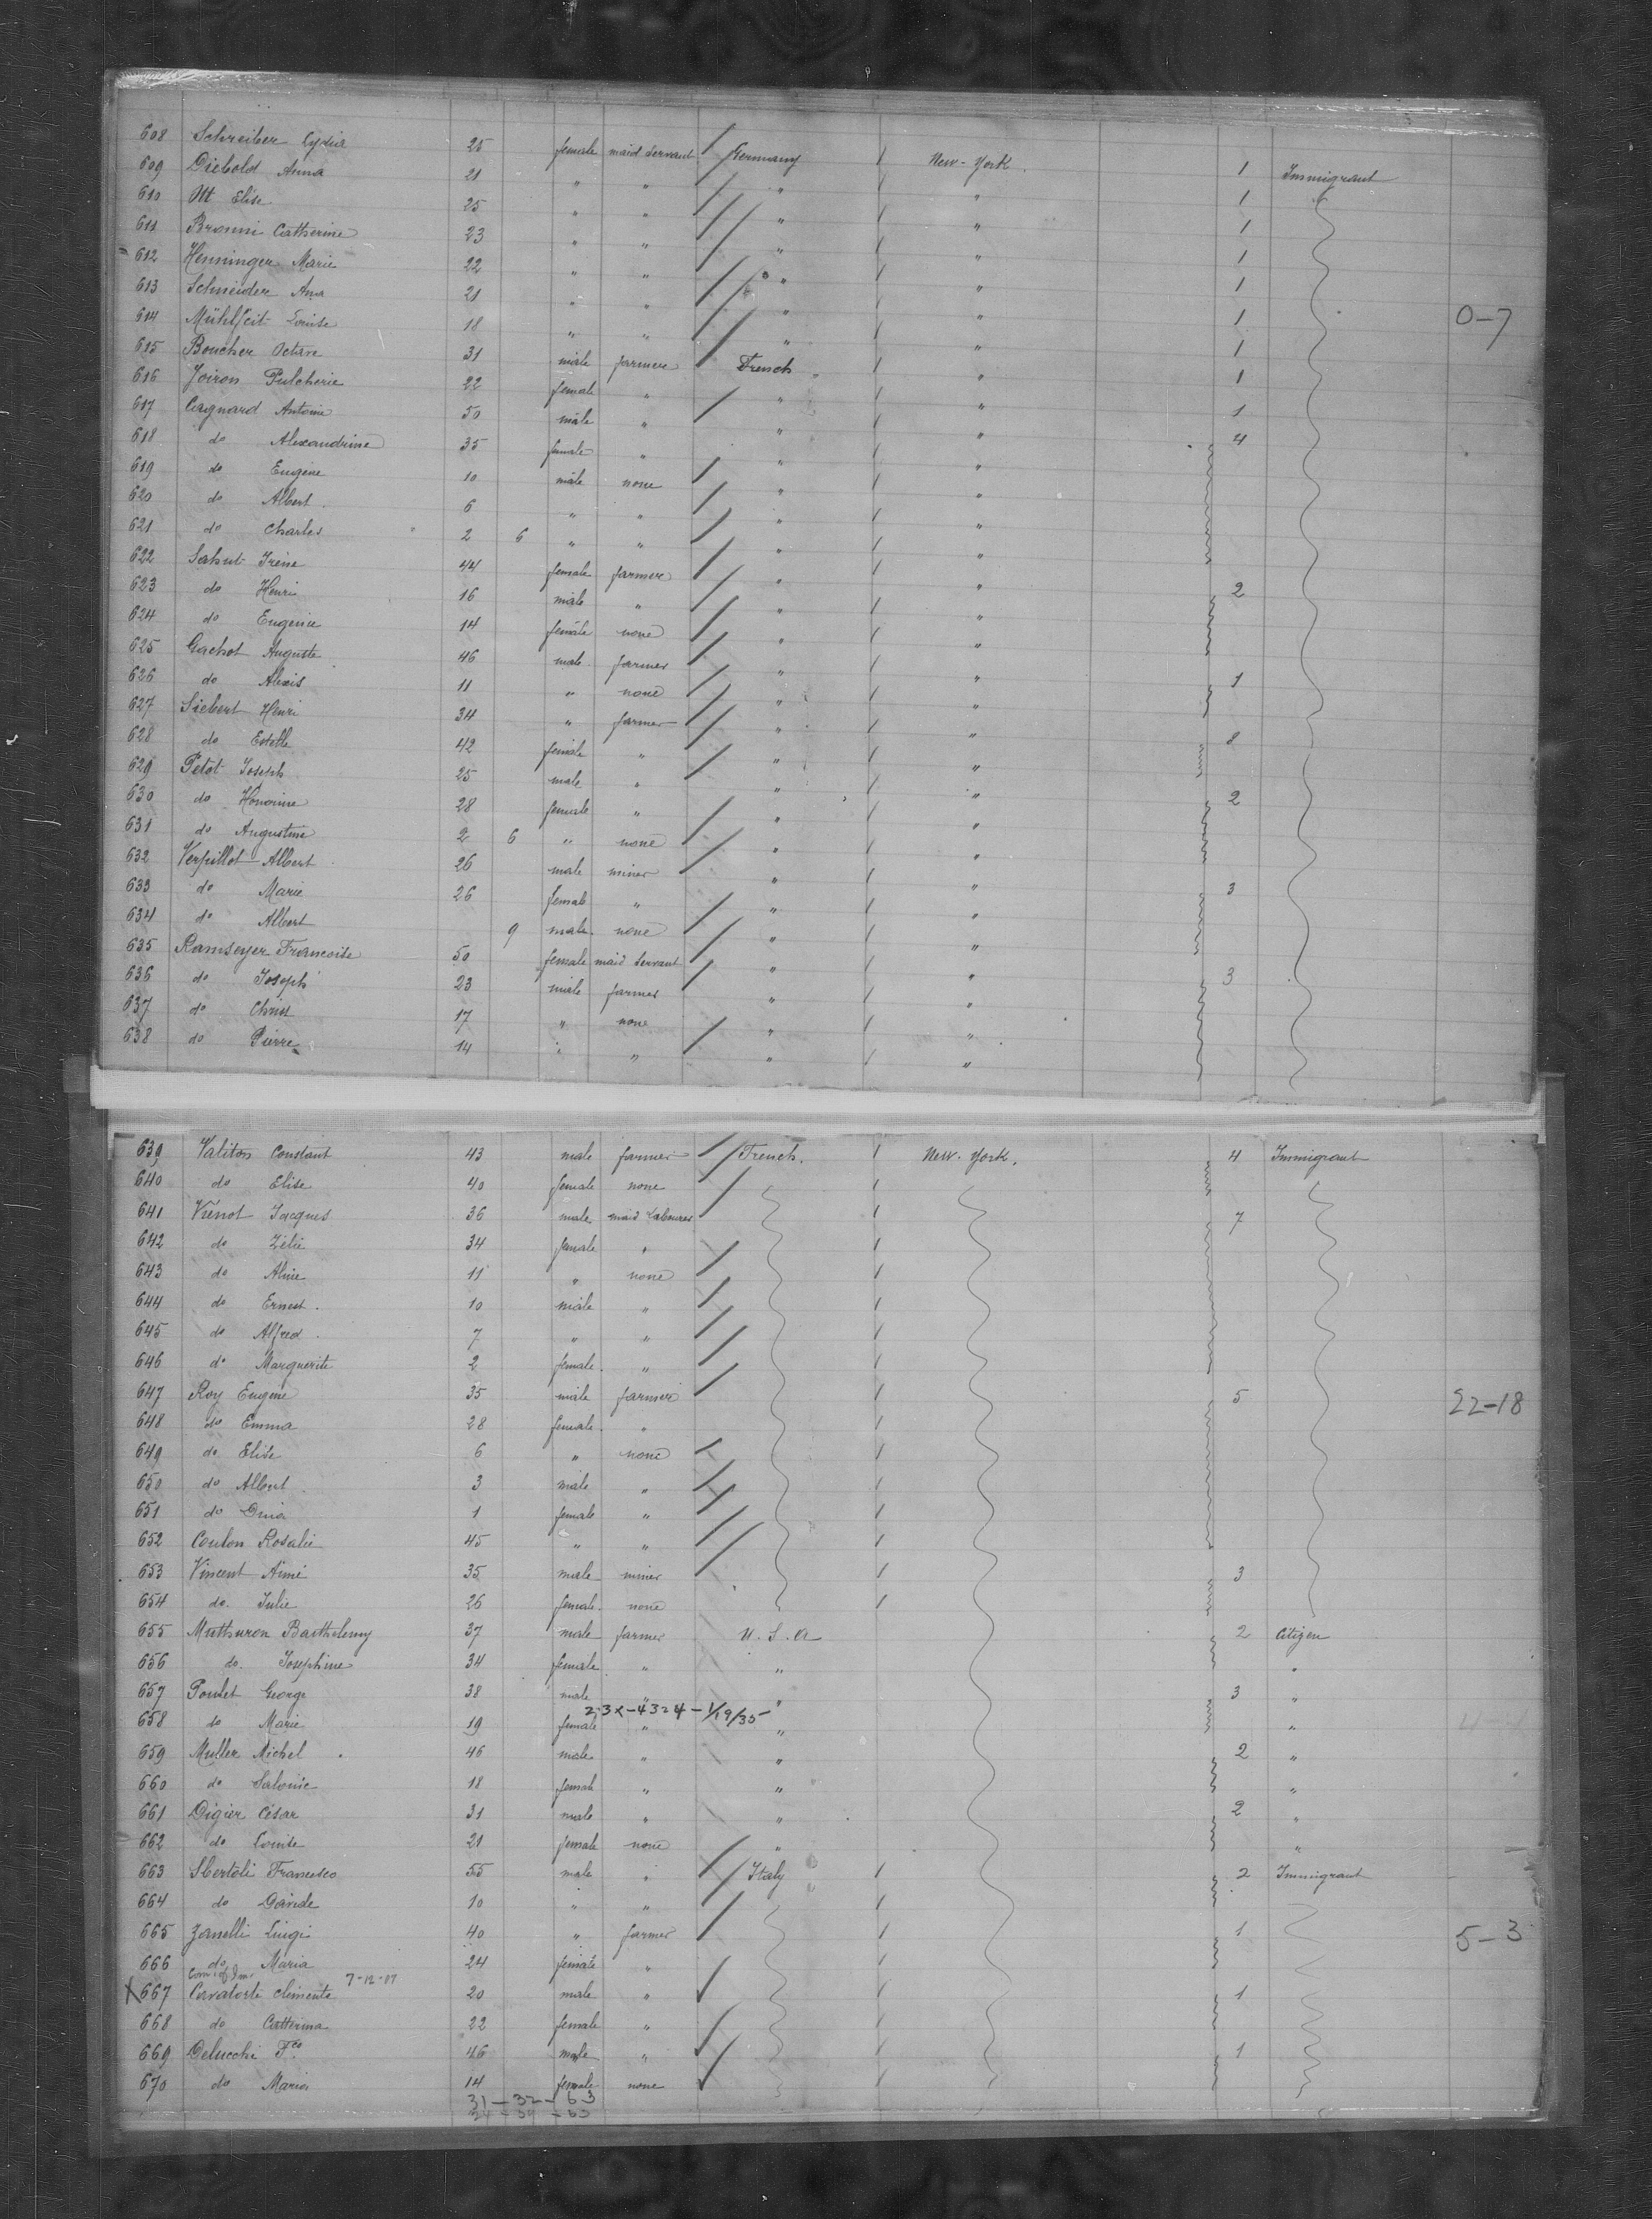 608 Schreiber Lydia 25 female maid Servant Germany New-York 1 Immigrant
609 Diebold Anna 21 " " " " 1
610 Ott Elise 25 " " " " 1
611 Bronni Catherine 23 " " " " 1
612 Henninger Marie 22 " " " " 1
613 Schneider Ana 21 " " " " 1
614 Mühlfeit Louise 18 " " " " 1 0-7
615 Boucher Octave 31 male farmer French " 1
616 Joiron Pulcherie 22 female " " " 1
617 Cagnard Antoine 50 male " " " 4
618 do Alexandrine 35 female " " "
619 do Eugène 10 male none " "
620 do Albert 6 " " " "
621 do Charles 2 6 " " " "
622 Sahut Irène 44 female farmer " " 2
623 do Henri 16 male " " "
624 do Eugenie 14 female none " "
625 Gachot Auguste 46 male farmer " " 1
626 do Alexis 11 " none " "
627 Siebert Henri 34 " farmer " " 8
628 do Estelle 42 female " " "
629 Petot Joseph 25 male " " " 2
630 do Honorine 28 female " " "
631 do Augustine 2 6 " none " "
632 Verpillot Albert 26 male miner " " 3
633 do Marie 26 female " " "
634 do Albert 9 male none " "
635 Ramseyer Francoise 50 female maid Servant " " 3
636 do Joseph 23 male farmer " "
637 do Christ 17 " none " "
638 do Pierre 14 " " " "
639 Valiton Constant 43 male farmer French. New-York. 4 Immigrant
640 do Elise 40 female none
641 Viénot Jacques 36 male maid Labourer 7
642 do Zélie 34 female "
643 do Aline 11 " none
644 do Ernest 10 male "
645 do Alfred 7 " "
646 do Marguerite 2 female "
647 Roy Eugène 35 male farmer 5 22-18
648 do Emma 28 female "
649 do Elise 6 " none
650 do Albert 3 male "
651 do 1 female "
652 Coulon Rosalie 45 " "
653 Vincent Aimé 35 male miner 3
654 do. Julie 26 female none
655 Muthuron Barthelemy 37 male farmer U.S.A 2 Citizen
656 do. Josephine 34 female " " "
657 Poulet George 38 male " " 3 "
2-3x-4324-1/19/35
658 do Marie 19 female " " "
659 Muller Michel 46 male " " 2 "
660 do Salomie 18 female " " "
661 Digier César 31 male " " 2 "
662 do Louise 21 female none " "
663 Sbertoli Francesco 55 male " Italy 2 Immigrant
664 do Davide 10 " "
665 Zanelli Luigi 40 " farmer 1 5-3
666 do Maria 24 female "
Com. of Im. 7-12-17
X 667 Cavatorti Clemente 20 male " 1
668 do Catterina 22 female "
669 Delucchi Fco 46 male " 1
670 do Maria 14 female none
31-32-63